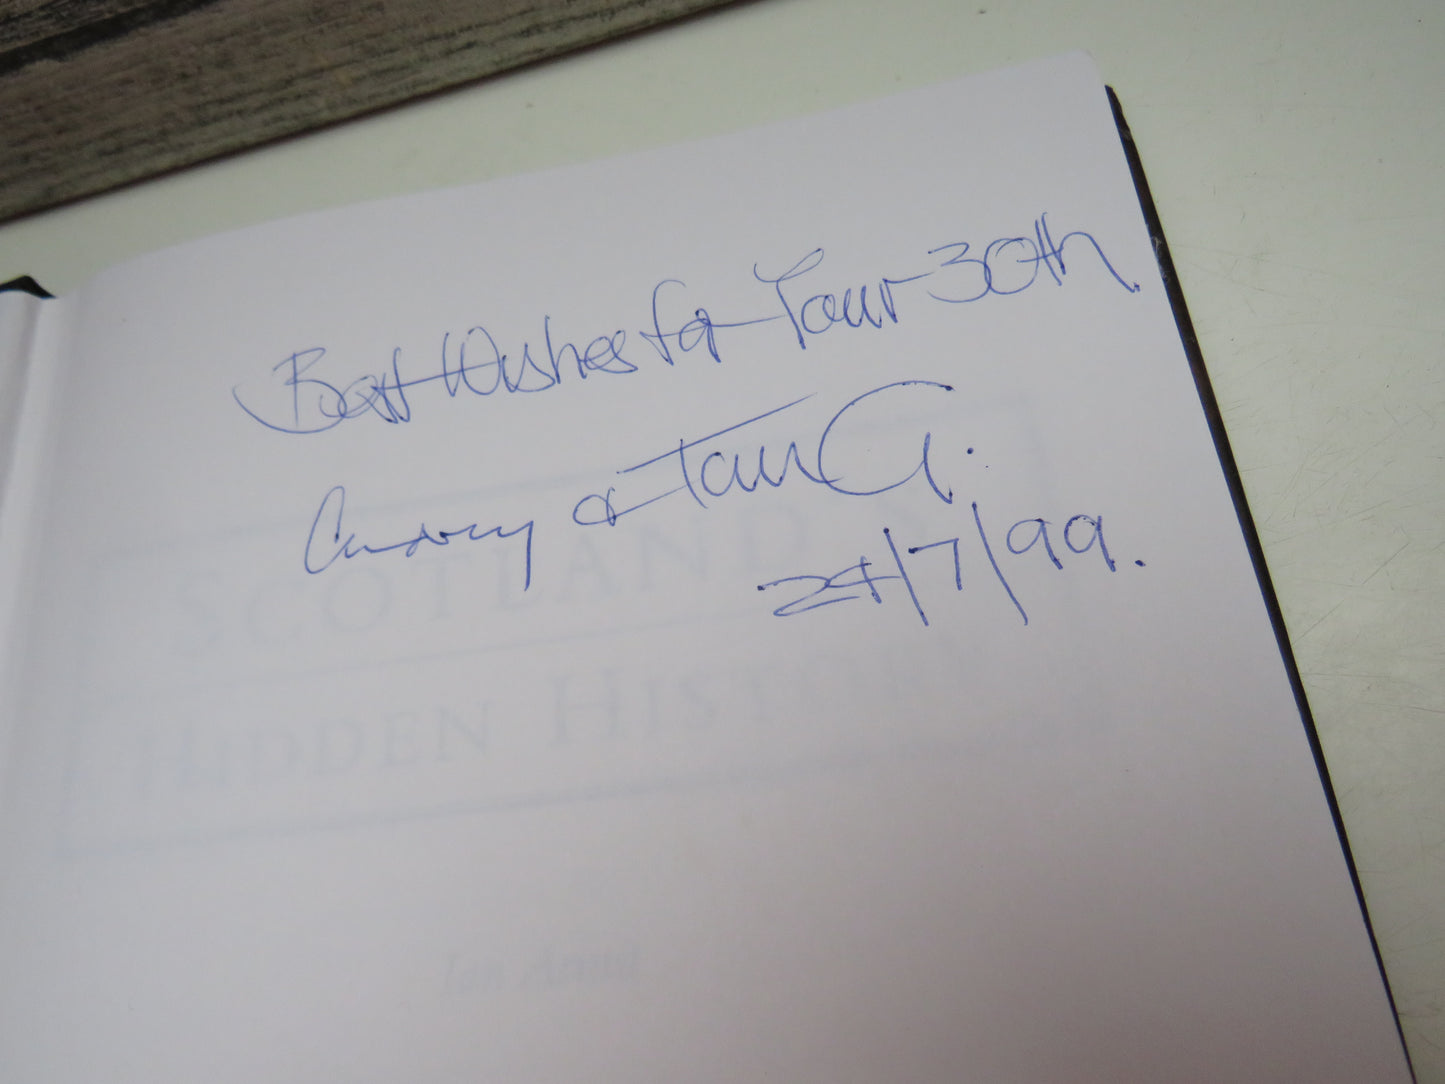 Best Wishes for Your 30th
& Ian G.
24/7/99.
SCOTLAND'S
HIDDEN HISTORY
Ian Armit